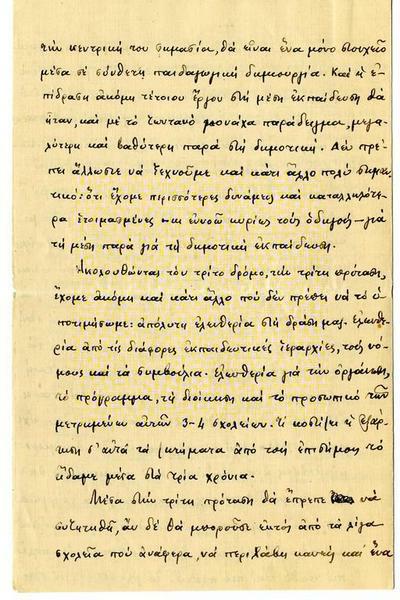 τὴν κεντρική του σημασία, θὰ εἶναι ἕνα μόνο στοιχεῖο
μέσα σὲ σύνθετη παιδαγωγικὴ δημιουργία. Καὶ ἡ ἐ-
πίδραση ἀκόμη τέτοιου ἔργου στὴ μέση ἐκπαίδευση θὰ
ἦταν, καὶ μὲ τὸ ζωντανὸ μονάχα παράδειγμα, μεγα-
λύτερη καὶ βαθύτερη παρὰ στὴ δημοτική. Δὲν πρέ-
πει ἄλλωστε νὰ ξεχνοῦμε καὶ κάτι ἄλλο πολὺ σημαν-
τικό: ὅτι ἔχομε περισσότερες δυνάμεις καὶ καταλληλότε-
ρα ἑτοιμασμένες – κι ἐννοῶ κυρίως τοὺς ὁδηγούς – γιὰ
τὴ μέση παρὰ γιὰ τὴ δημοτικὴ ἐκπαίδευση.
Ἀκολουθώντας τὸν τρίτο δρόμο, τὴν τρίτη πρόταση,
ἔχομε ἀκόμη καὶ κάτι ἄλλο ποὺ δὲν πρέπει νὰ τὸ ὑ-
ποτιμήσωμε: ἀπόλυτη ἐλευθερία στὴ δράση μας. Ἐλευθε-
ρία ἀπὸ τὶς διάφορες ἐκπαιδευτικὲς ἱεραρχίες, τοὺς νό-
μους καὶ τὰ συμβούλια. Ἐλευθερία γιὰ τὴν ὀργάνωση,
τὸ πρόγραμμα, τὴ διοίκηση καὶ τὸ προσωπικὸ τῶν
μετρημένων αὐτῶν 3-4 σχολείων. Τί κοστίζει ἡ ἐξάρ-
τηση σ' αὐτὰ τὰ ζητήματα ἀπὸ τοὺς ἐπισήμους τὸ
εἴδαμε μέσα στὰ τρία χρόνια.
Μέσα στὴν τρίτη πρόταση θὰ ἔπρεπε νὰ
συζητηθῆ, ἂν δὲ θὰ μποροῦσε ἐκτὸς ἀπὸ τὰ λίγα
σχολεῖα ποὺ ἀνάφερα, νὰ περιλάβη κανεὶς καὶ ἕνα